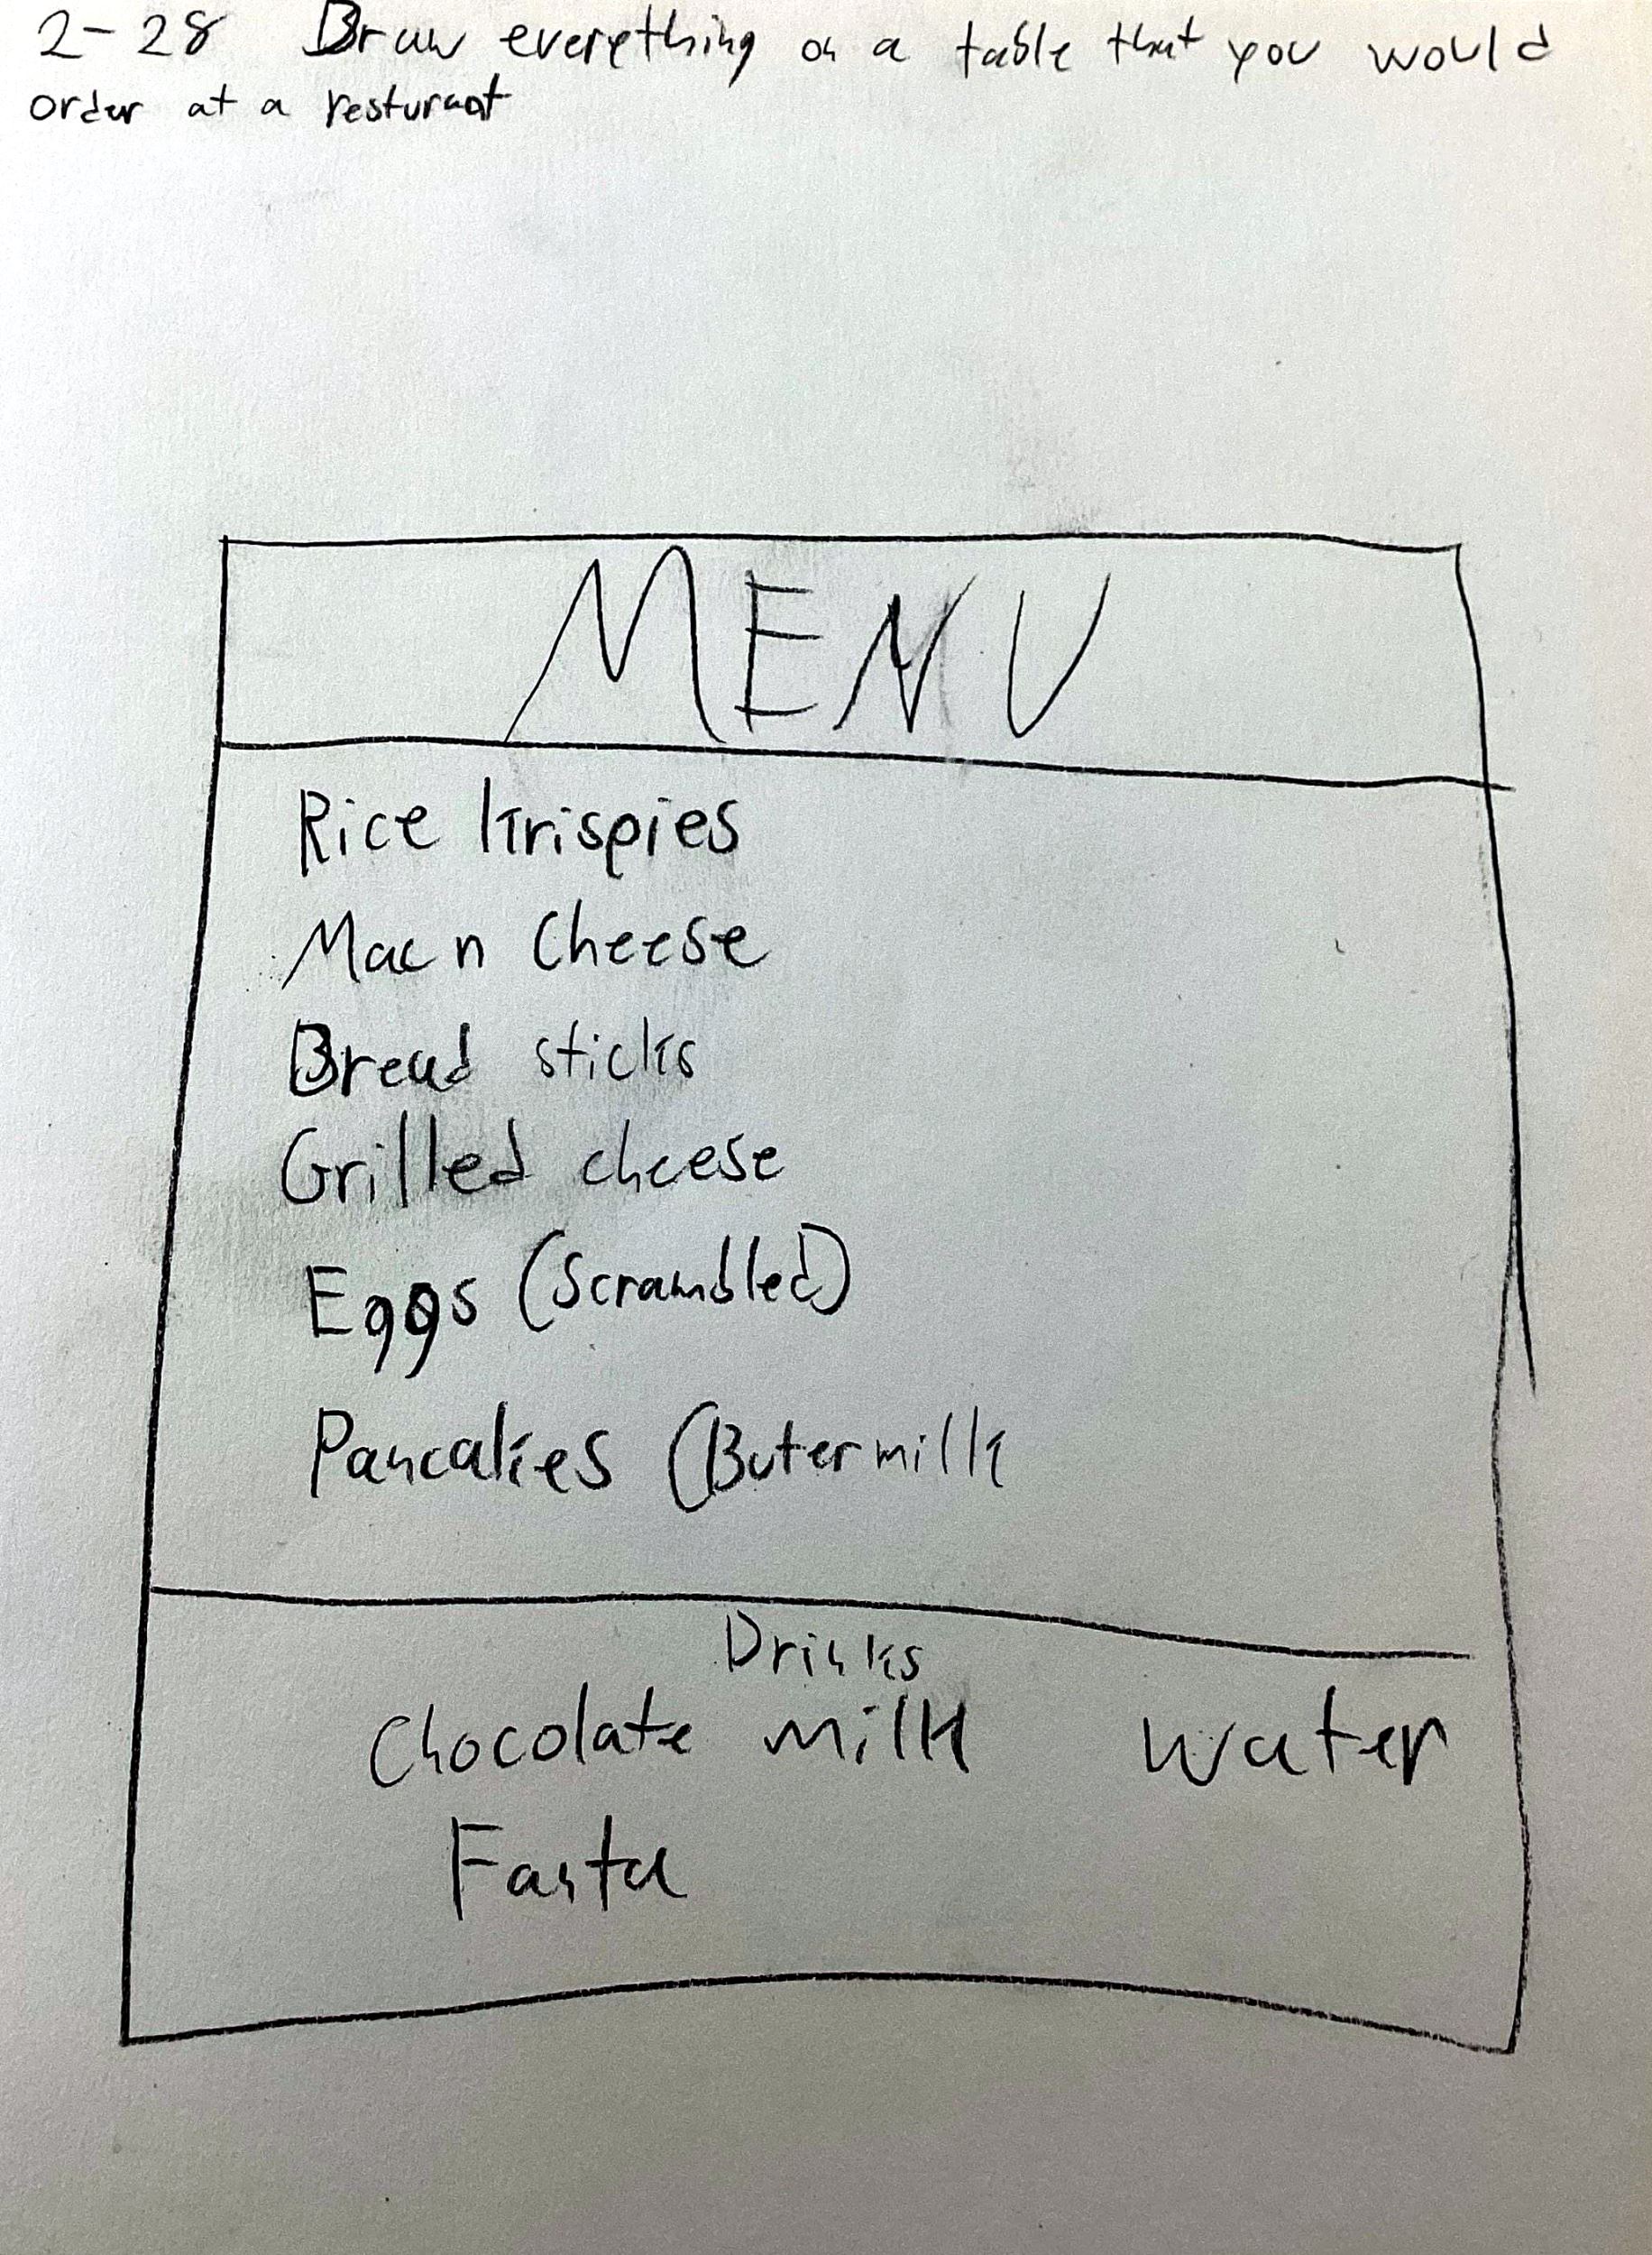 2-28 Draw everything on a table that you would
order at a resturant
MENU
Rice Krispies
Mac n Cheese
Bread sticks
Grilled cheese
Eggs (Scrambled)
Pancakes (Butermilk
Drinks
Chocolate milk water
Fanta